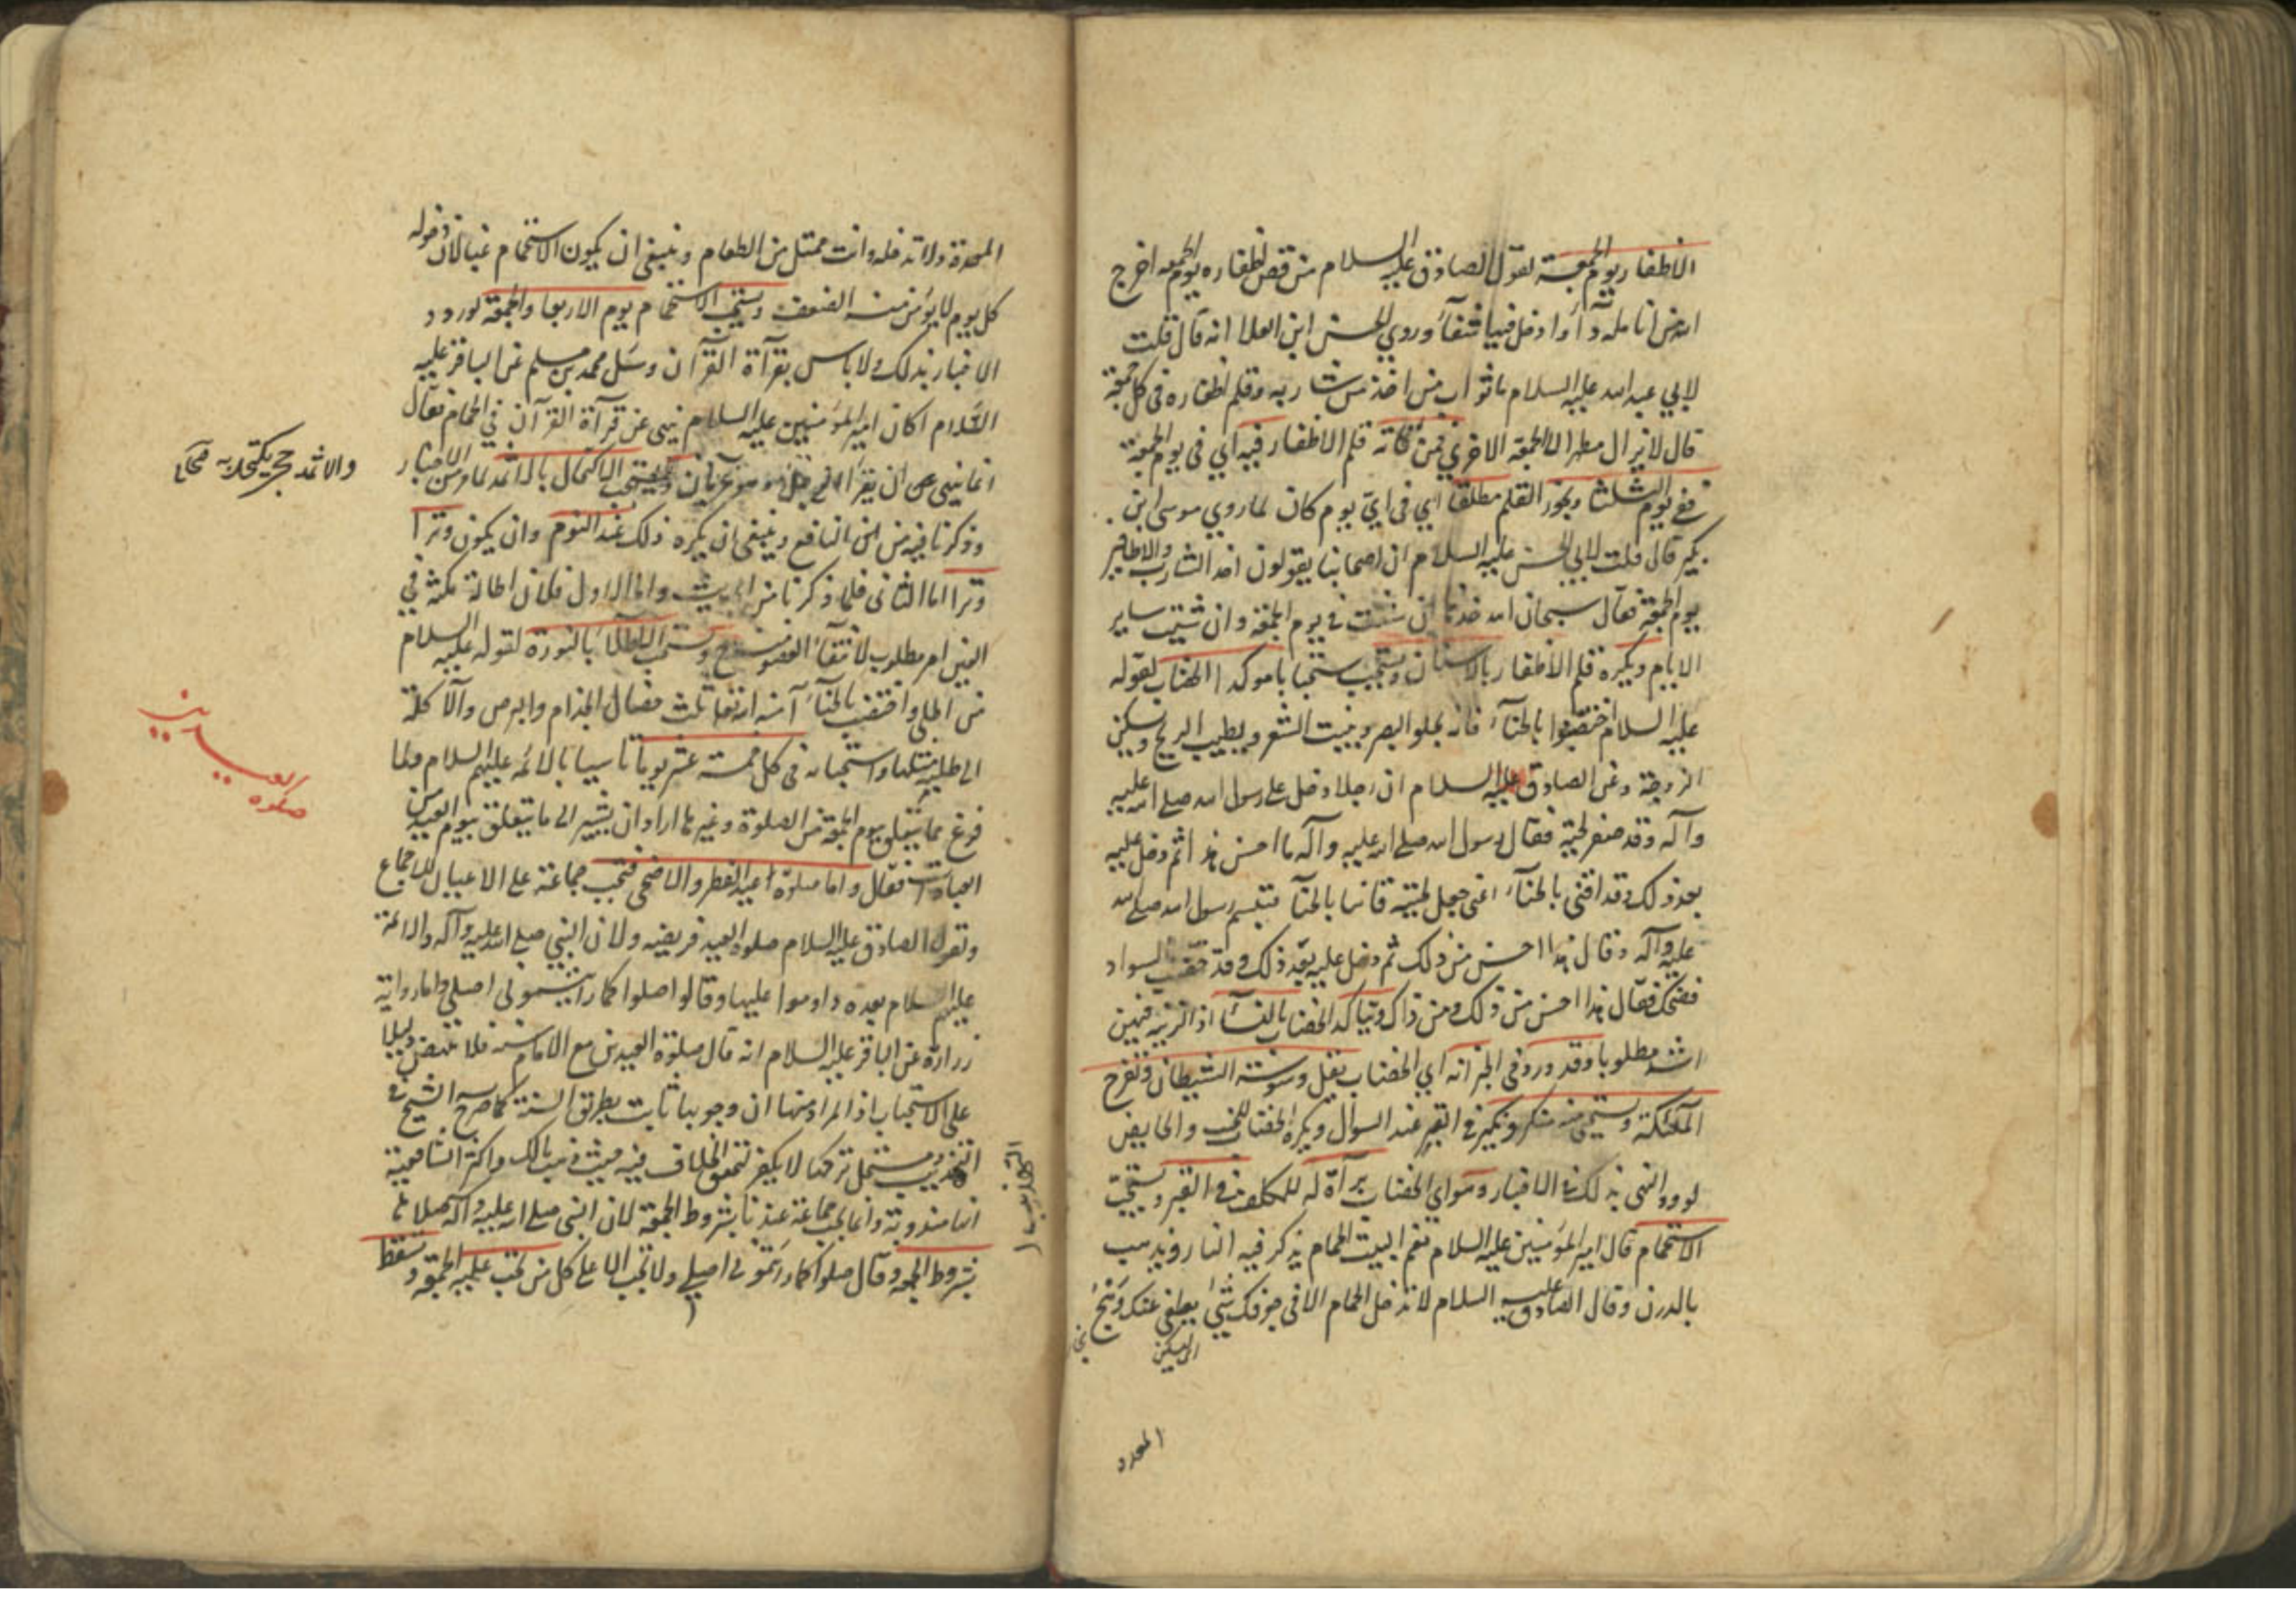 الاظفار يوم الجمعة لقول الصادق عليه السلام من قص اظفاره يوم الجمعه اخرج
الله من انامله دآءً وا دخل فيها شفآءً وروي الحسن ابن العلا انه قال قلت
لابي عبد الله عليه السلام ما ثواب من اخذ من شاربه وقلم اظفاره في كل جمعة
قال لا يزال مطهرا الى الجمعة الاخرى فمن فاته قلم الاظفار فيه اي في يوم الجمعة
ففي يوم الثلثا ويجوز القلم مطلقا اي في اي يوم كان لما روي موسى ابن
بكير قال قلت لابي الحسن عليه السلام ان اصحابنا يقولون اخذ الشارب والاظافير
يوم الجمعة فقال سبحان الله خذها ان شئت في يوم الجمعة وان شئت ساير
الايام ويكره قلم الاظفار بالاسنان ويستحب استحبابا موكدا الخضاب لقوله
عليه السلام اختضبوا بالحنآء فانه يجلو البصر وينبت الشعر ويطيب الريح ويسكن
الزوجة وعن الصادق عليه السلام ان رجلا دخل على رسول الله صلى الله عليه
وآله وقد صفر لحيته فقال رسول الله صلى الله عليه وآله ما احسن هذا ثم دخل عليه
بعد ذلك وقد اقنى بالحنآء اعنى جعل لحيته قانيا بالحنآ فتبسم رسول الله صلى الله
عليه وآله وقال هذا احسن من ذلك ثم دخل عليه بعد ذلك وقد خضب السواد
فضحك فقال هذا احسن من ذلك ومن ذاك ويتاكد الخضاب بالنسآء اذ التزيه فيهن
اشد مطلوبا وقد ورد في الخبر انه اي الخضاب يقل وسوسة الشيطان وتفرح
الملئكة ويستحي منه منكر ونكير في القبر عند السوال ويكره الخضاب للجنب والحايض
لورود النهى بذلك في الاخبار وهو اي الخضاب برآة له للمكلف في القبر ويستحب
الاستحمام قال امير المؤمنين عليه السلام نعم البيت الحمام يذكر فيه النار ويذهب
بالدرن وقال الصادق عليه السلام لا تدخل الحمام الا في جوفك شئ يطفى عنك وهج
المعدة
المعدة ولا تدخله وانت ممتل من الطعام وينبغى ان يكون الاستحمام غبا لان دخوله
كل يوم لا يؤمن منه الضعف ويستحب الاستحمام يوم الاربعا والجمعة لورود
الاخبار بذلك ولا باس بقرآة القرآن وسئل محمد بن مسلم عن الباقر عليه
السلام اكان امير المؤمنين عليه السلام ينهى عن قرآة القرآن في الحمام فقال
انما نهى ان يقرا الرجل وهو عريان ويستحب الاكتحال بالاثمد لما مر من الاخبار
والاثمد حجر يكتحل به
وذكرنا فيه من المنافع وينبغى ان يكره ذلك عند النوم وان يكون وترا
وترا اما الثاني فلما ذكرنا من الحديث واما الاول فلان اطالة مكثه في
العين امر مطلوب لانتفآء العضو ويستحب الاطلاء بالنورة لقوله عليه السلام
من اطلى واختضب بالحنآء آمنه الله تعا ثلث خصال الجذام والبرص والآكلة
الى طلية مثلها واستحبابه في كل خمسة عشر يوما تاسيا بالائمه عليهم السلام ولما
فرغ مما يتعلق بيوم الجمعة من الصلوة وغيرها اراد ان يشير الى ما يتعلق بيوم العيد من
صلوة العيدين
العبادات فقال واما صلوة عيد الفطر والاضحى فتجب جماعة على الاعيان للاجماع
ولقول الصادق عليه السلام صلوة العيد فريضه ولان النبي صلى الله عليه وآله والائمة
عليهم السلام بعده داوموا عليها وقالوا صلوا كما رايتموني اصلي واما رواية
زرارة عن الباقر عليه السلام انه قال صلوة العيدين مع الامام سنه فلا تنهض دليلا
على الاستحباب اذ المراد منها ان وجوبها ثابت بطريق السنة كما صرح به الشيخ في
التهذيب ومستحل تركها لا يكفر لتحقق الخلاف فيه حيث ذهب مالك واكثر الشافعية
التهذيب
انها مندوبة وانما تجب جماعة عندنا بشروط الجمعة لان النبى صلى الله عليه وآله صلاها
بشروط الجمعة وقال صلوا كما رايتموني اصلي ولا تجب الا على كل من تجب عليه الجمعة وتسقط